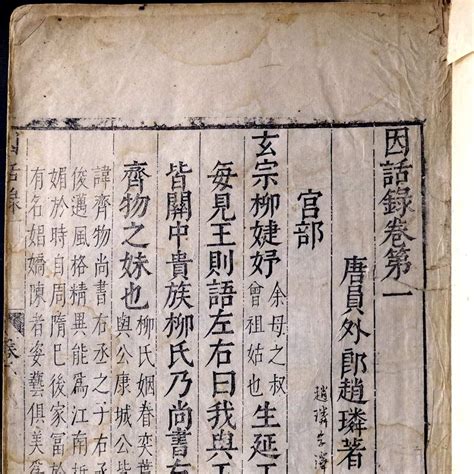 因話錄卷第一
唐員外郎趙璘著
趙璘字澤
宫部
玄宗柳婕妤
余母之叔
曾祖姑也
生延王
每見王則語左右曰我與王
皆關中貴族柳氏乃尚書右
齊物之妹也
柳氏姻眷奕葉
與公康城公
諱齊物尚書右丞之子右
俊邁風格精異能爲江南折
媚於時自周隋巳後家富
有名娼嬌陳者姿藝俱美
因話錄